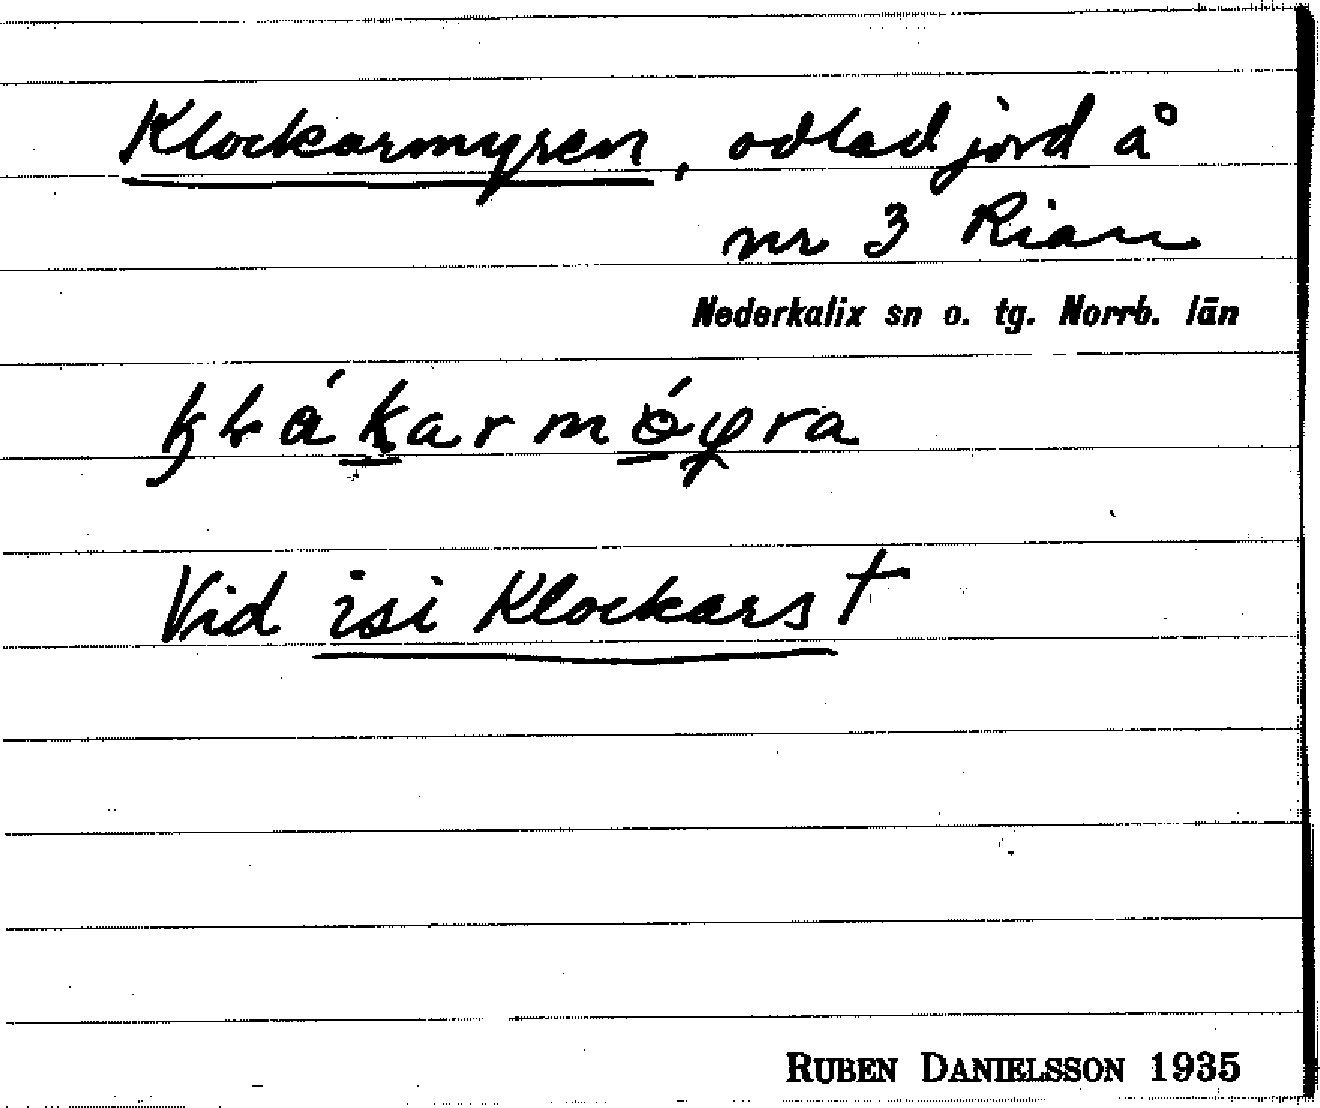 Klockarmyren, odlad jord å
nr 3 Rian
Nederkalix sn o. tg. Norrb. län
Vid isi Klockars †
RUBEN DANIELSSON 1935